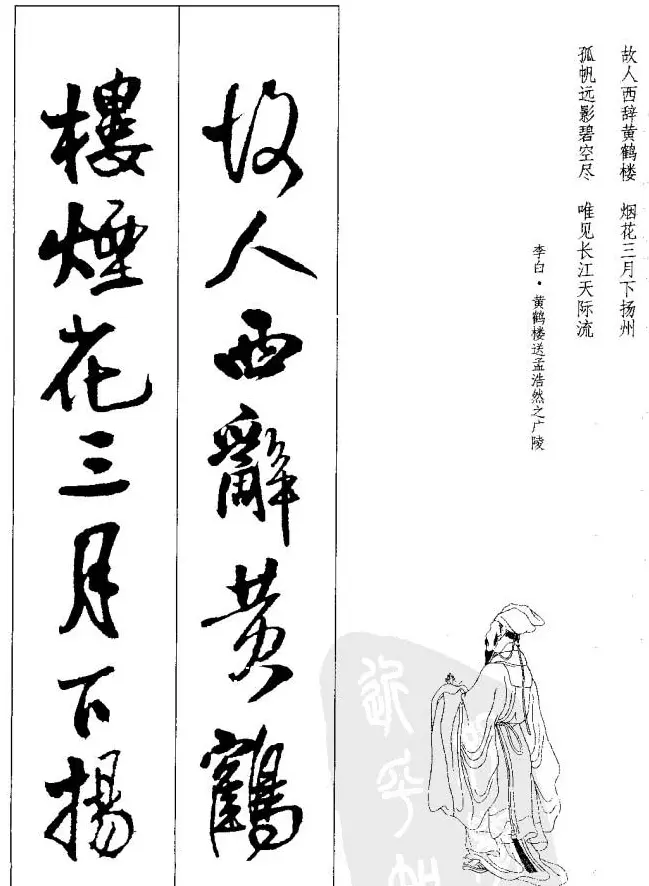 故人西辞黄鹤楼 烟花三月下扬州
孤帆远影碧空尽 唯见长江天际流
李白·黄鹤楼送孟浩然之广陵
故人西辭黄鶴
樓煙花三月下揚